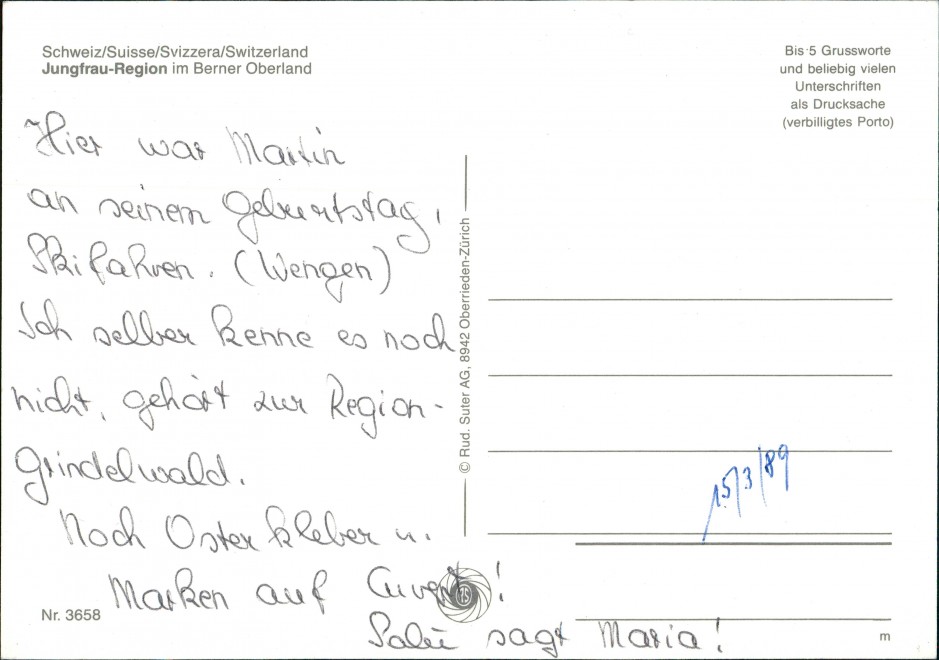 Schweiz/Suisse/Svizzera/Switzerland
Jungfrau-Region im Berner Oberland
Bis 5 Grussworte
und beliebig vielen
Unterschriften
als Drucksache
(verbilligtes Porto)
Hier war Martin
an seinem Geburtstag,
Skifahren. (Wengen)
Ich selber kenne es noch
nicht, gehört zur Region-
Grindelwald.
Noch Osterkleber u.
Marken auf Cuvert!
Salü sagt Maria!
© Rud. Suter AG, 8942 Oberrieden-Zürich
15/3/89
75
Nr. 3658
m